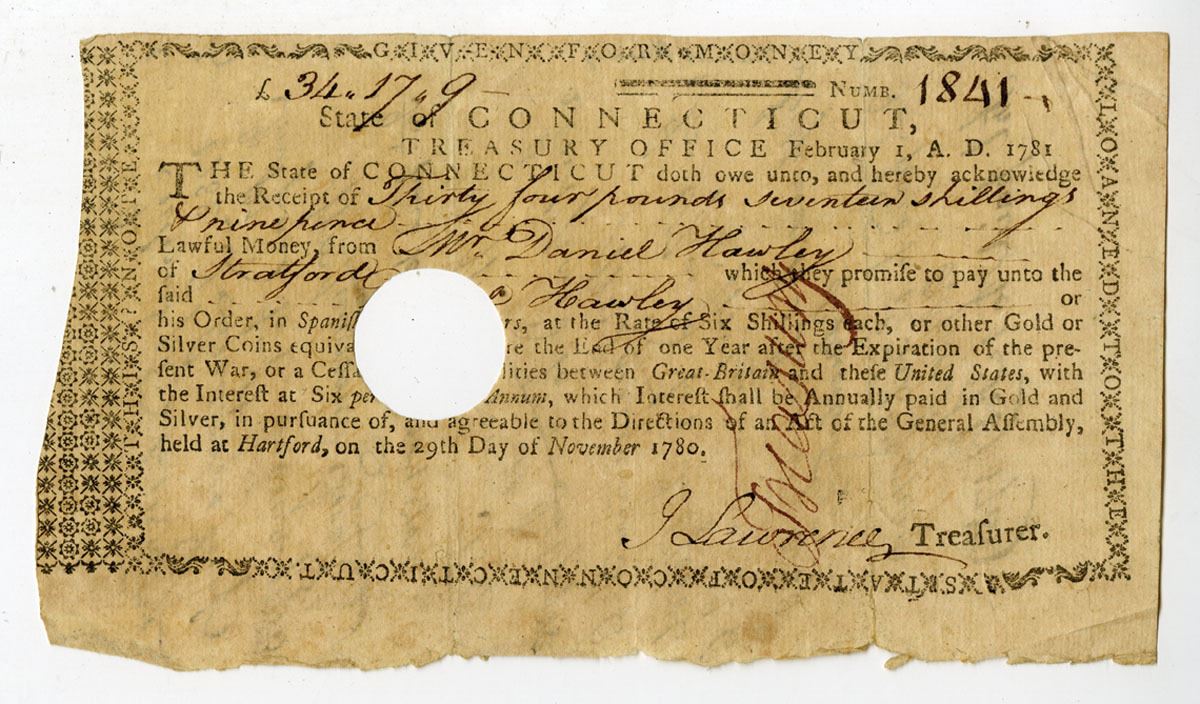 GIVEN FOR MONEY
£ 34 „ 17 „ 9 NUMB. 1841
State of CONNECTICUT,
TREASURY OFFICE February 1, A. D. 1781
THE State of CONNECTICUT doth owe unto, and hereby acknowledge
the Receipt of Thirty four pounds seventeen shillings
& nine pence
Lawful Money, from Mr. Daniel Hawley
of Stratford which they promiſe to pay unto the
ſaid Hawley or
his Order, in Spaniſ rs, at the Rate of Six Shillings each, or other Gold or
Silver Coins equiva re the End of one Year after the Expiration of the pre-
ſent War, or a Ceſſa lities between Great-Britain and theſe United States, with
the Intereſt at Six per Annum, which Intereſt ſhall be Annually paid in Gold and
Silver, in purſuance of, and agreeable to the Directions of an Act of the General Aſſembly,
held at Hartford, on the 29th Day of November 1780.
J Lawrence Treaſurer.
LOANED TO THE
STATE OF CONNECTICUT.
THIS NOTE